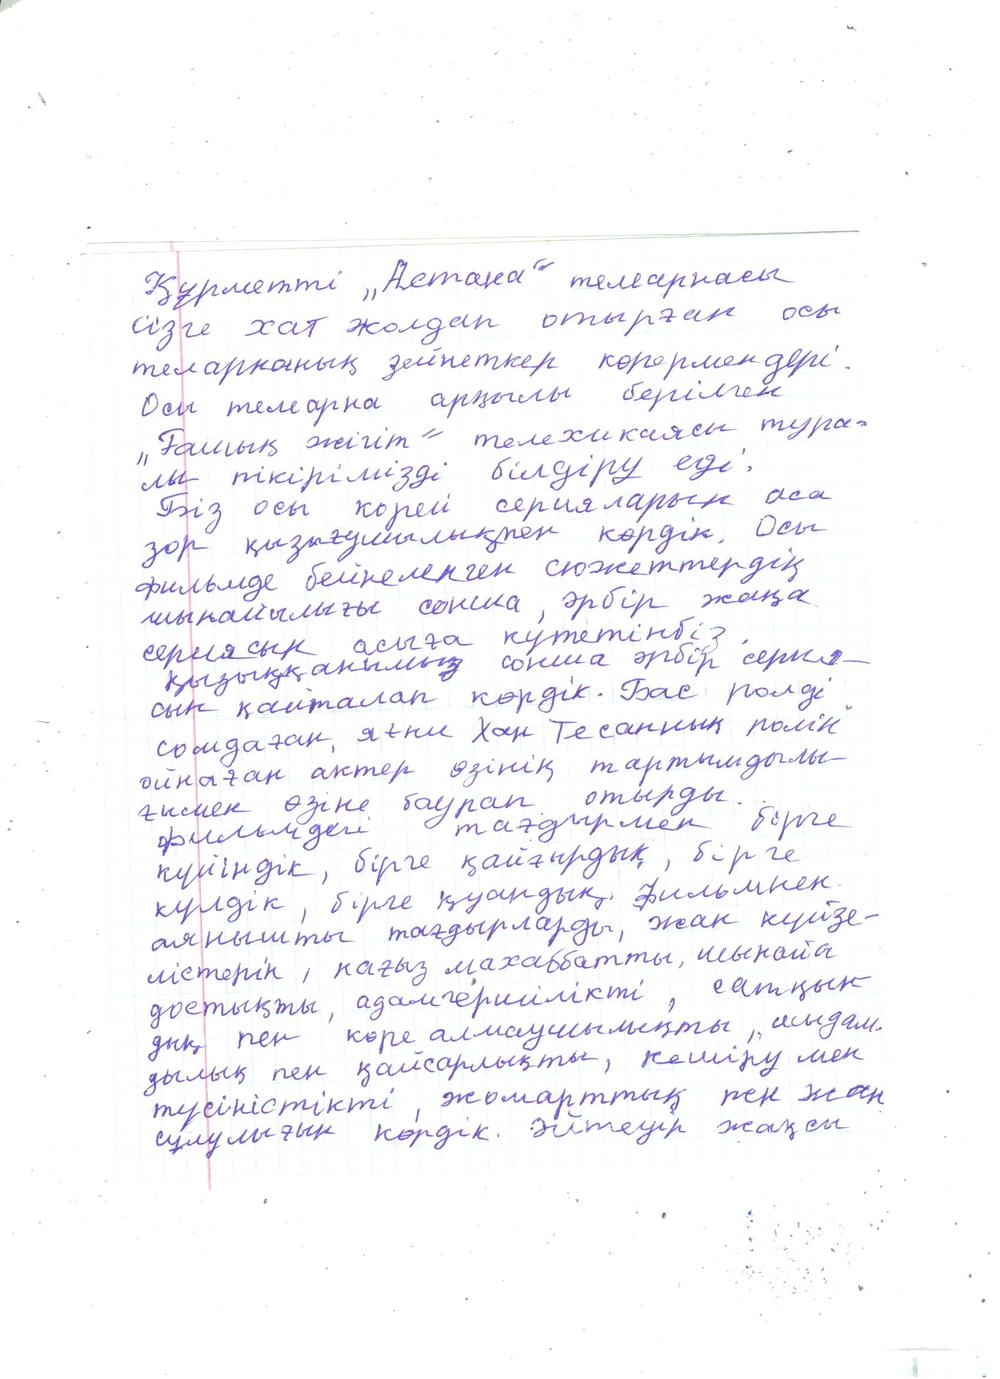 Құрметті „Астана“ телеарнасы
сізге хат жолдап отырған осы
теларнаның зейнеткер көрермендері.
Осы телеарна арқылы берілген
„Ғашық жігіт“ телехикаясы тура-
лы пікірімізді білдіру еді.
Біз осы корей серияларын аса
зор қызығушылықпен көрдік. Осы
фильмде бейнеленген сюжеттердің
шынайылығы сонша, әрбір жаңа
сериясын асыға күтетінбіз.
Қызыққанымыз сонша әрбір серия-
сын қайталап көрдік. Бас ролді
сомдаған, яғни Хан Тесанның ролін
ойнаған актер өзінің тартымдылы-
ғымен өзіне баурап отырды.
Фильмдегі тағдырмен бірге
күйіндік, бірге қайғырдық, бірге
күлдік, бірге қуандық. Фильмнен
аянышты тағдырларды, жан күйзе-
лістерін, нағыз махаббатты, шынайы
достықты, адамгершілікті, сатқын
дық пен көре алмаушылықты, шыдам-
дылық пен қайсарлықты, кешіру мен
түсіністікті, жомарттық пен жан
сұлулығын көрдік. Әйтеуір жақсы